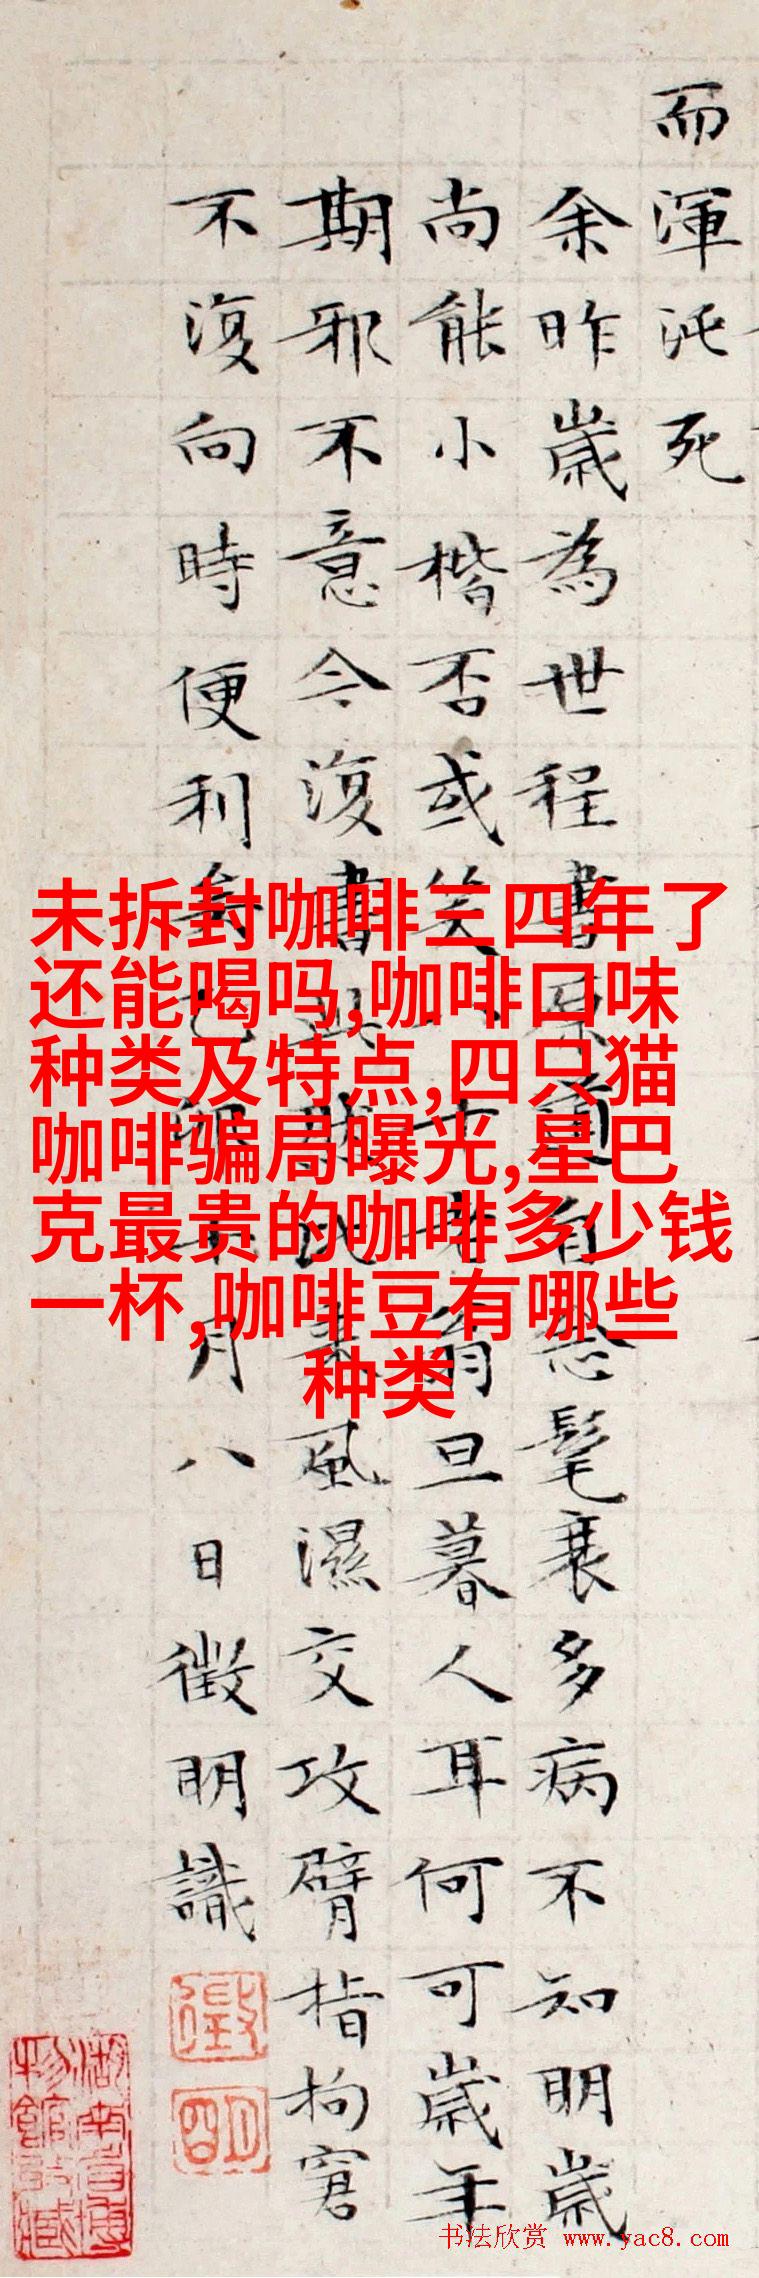 而渾沌死
余昨歲為世程書原道自念髦衰多病不知明歲
尚能小楷否或笑八十老翁旦暮人耳何可歲年
期邪不意今復書此然比來風濕交攻臂指拘窘
不復向時便利矣月八日徵明識
徵
明
湖南省博
物館收藏
未拆封咖啡三四年了
还能喝吗,咖啡口味
种类及特点,四只猫
咖啡骗局曝光,星巴
克最贵的咖啡多少钱
一杯,咖啡豆有哪些
种类
书法欣赏 www.yac8.com